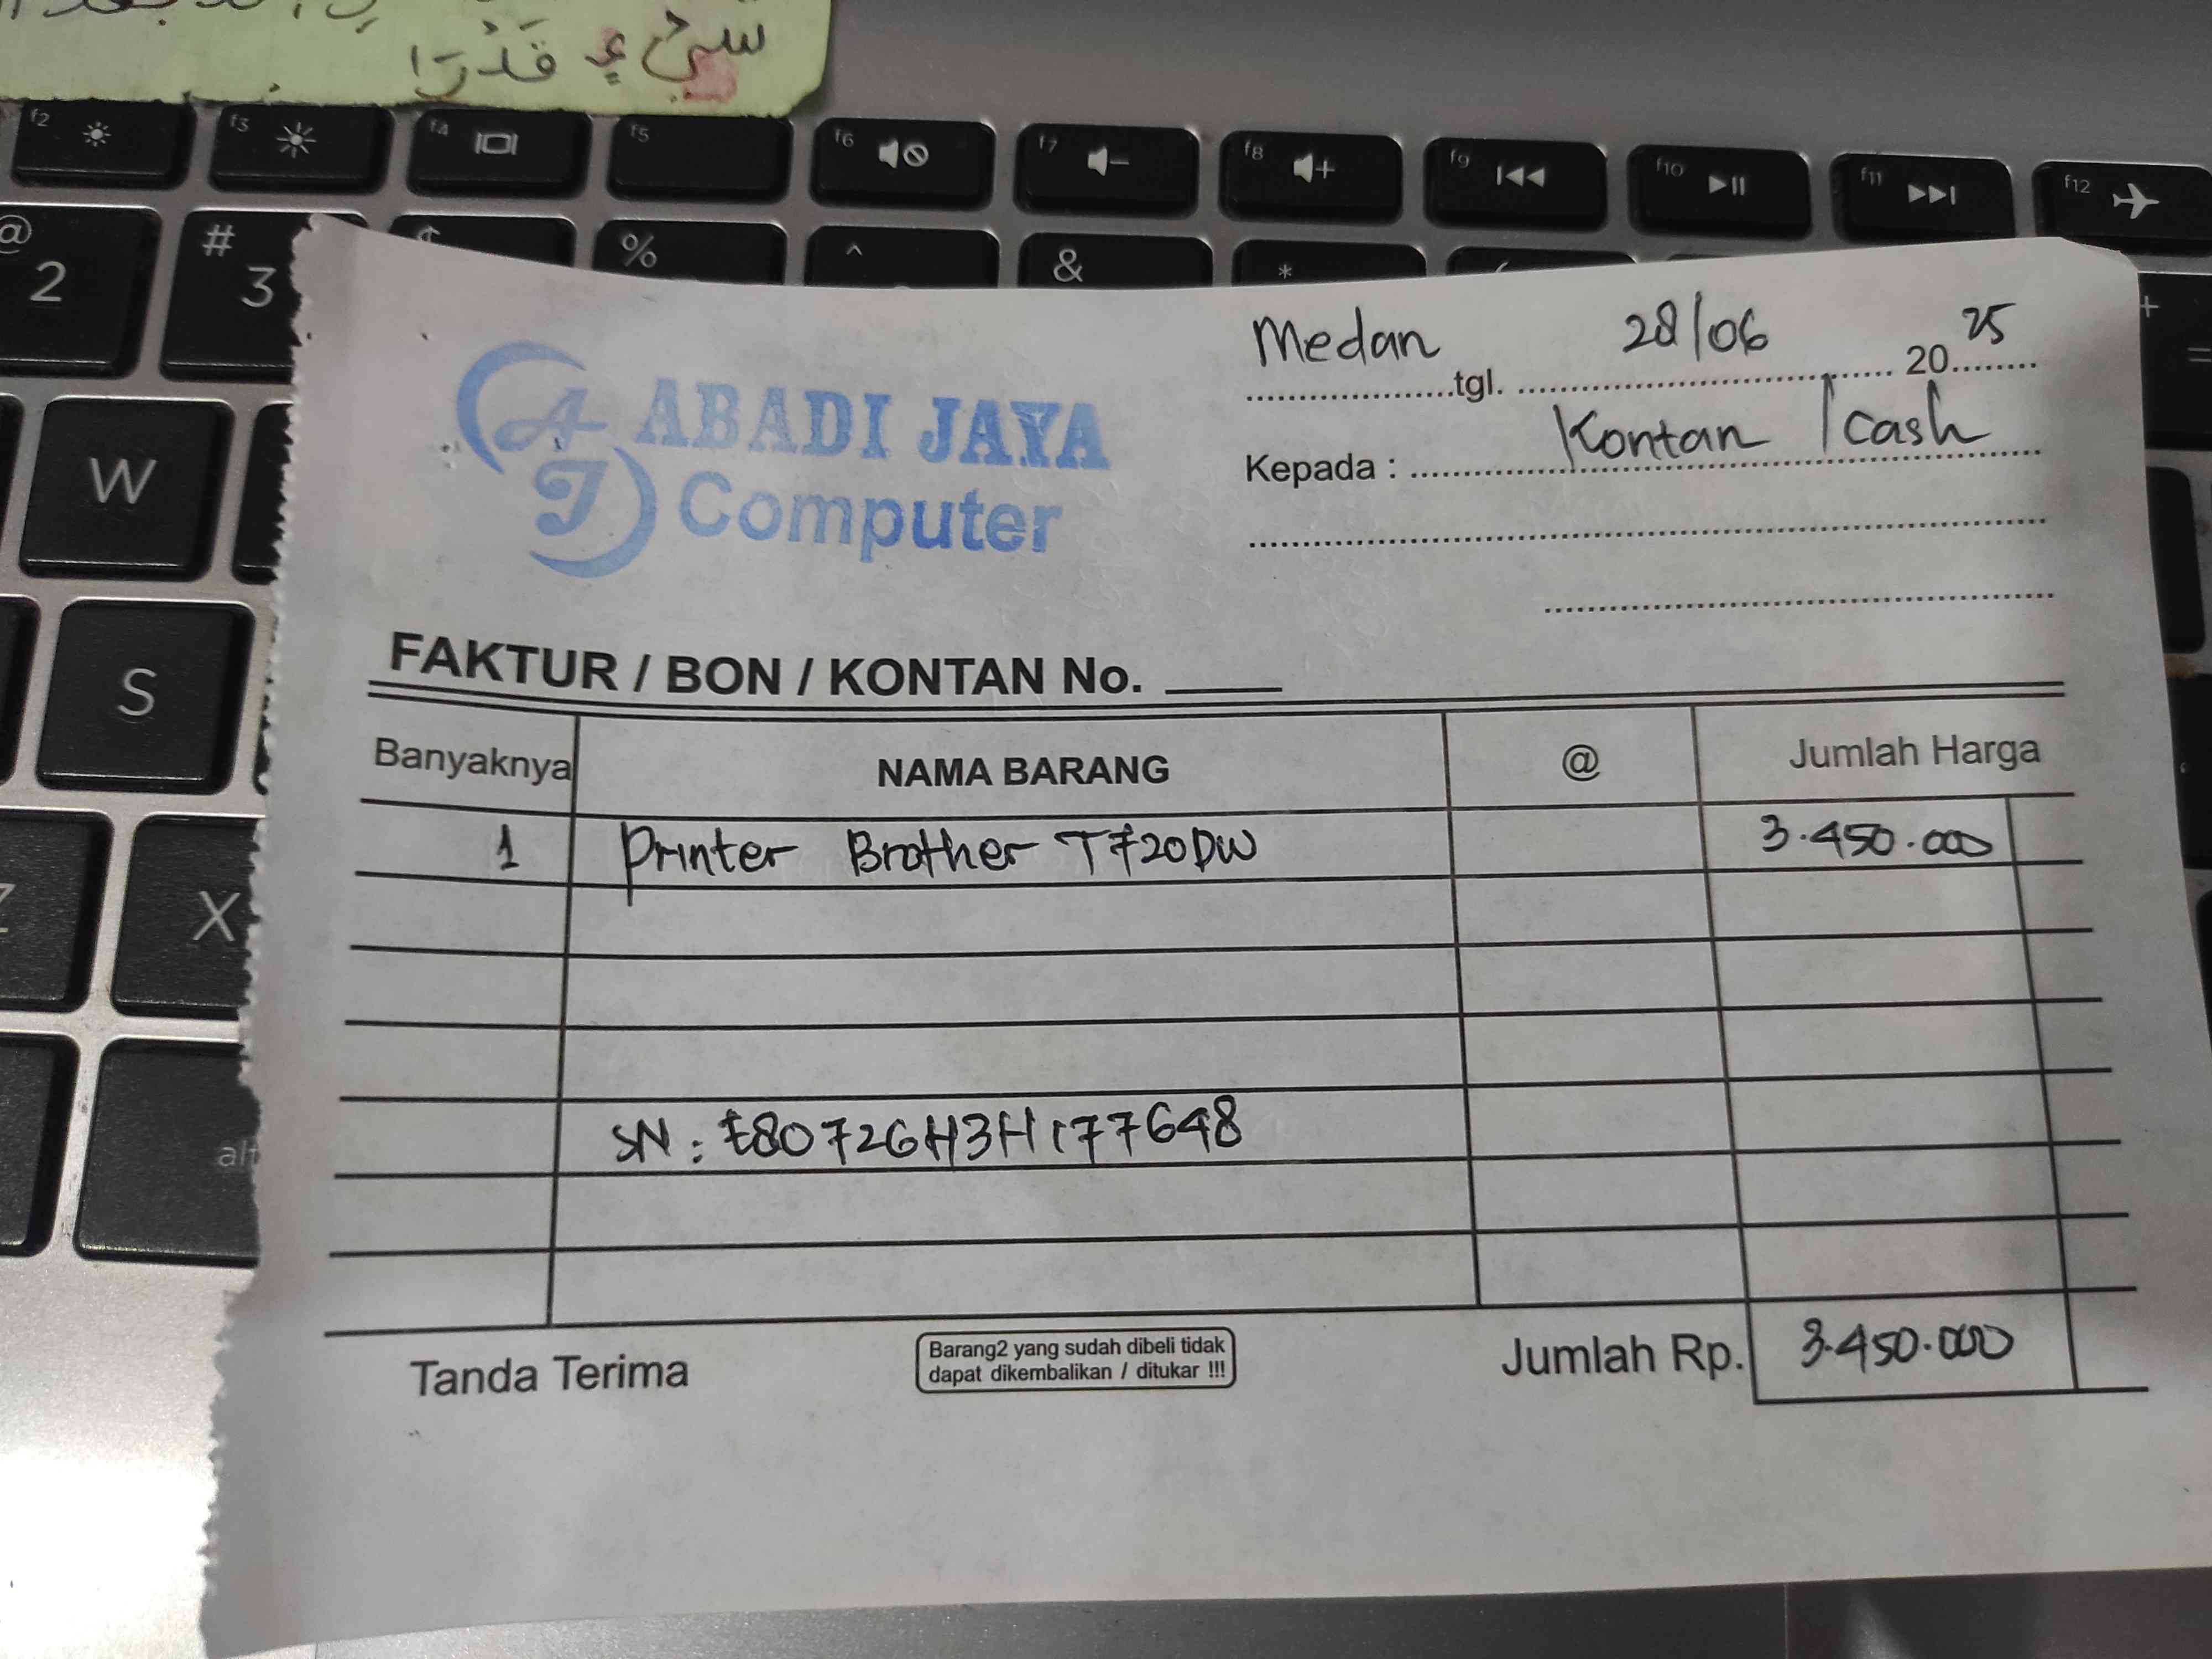 شَيْءٍ قَدْرًا
f2
f3
f4
f5
f6
f7
f8
f9
f10
f11
f12
@ 2
# 3
$
%
^
&
*
(
+ =
W
S
Z
X
alt
Medan tgl. 28/06 2025
Kepada : Kontan / Cash
AJ ABADI JAYA
Computer
FAKTUR / BON / KONTAN No.
Banyaknya NAMA BARANG @ Jumlah Harga
1 Printer Brother T720DW 3.450.000
SN : E80726H3H177648
Tanda Terima
Barang2 yang sudah dibeli tidak
dapat dikembalikan / ditukar !!!
Jumlah Rp. 3.450.000